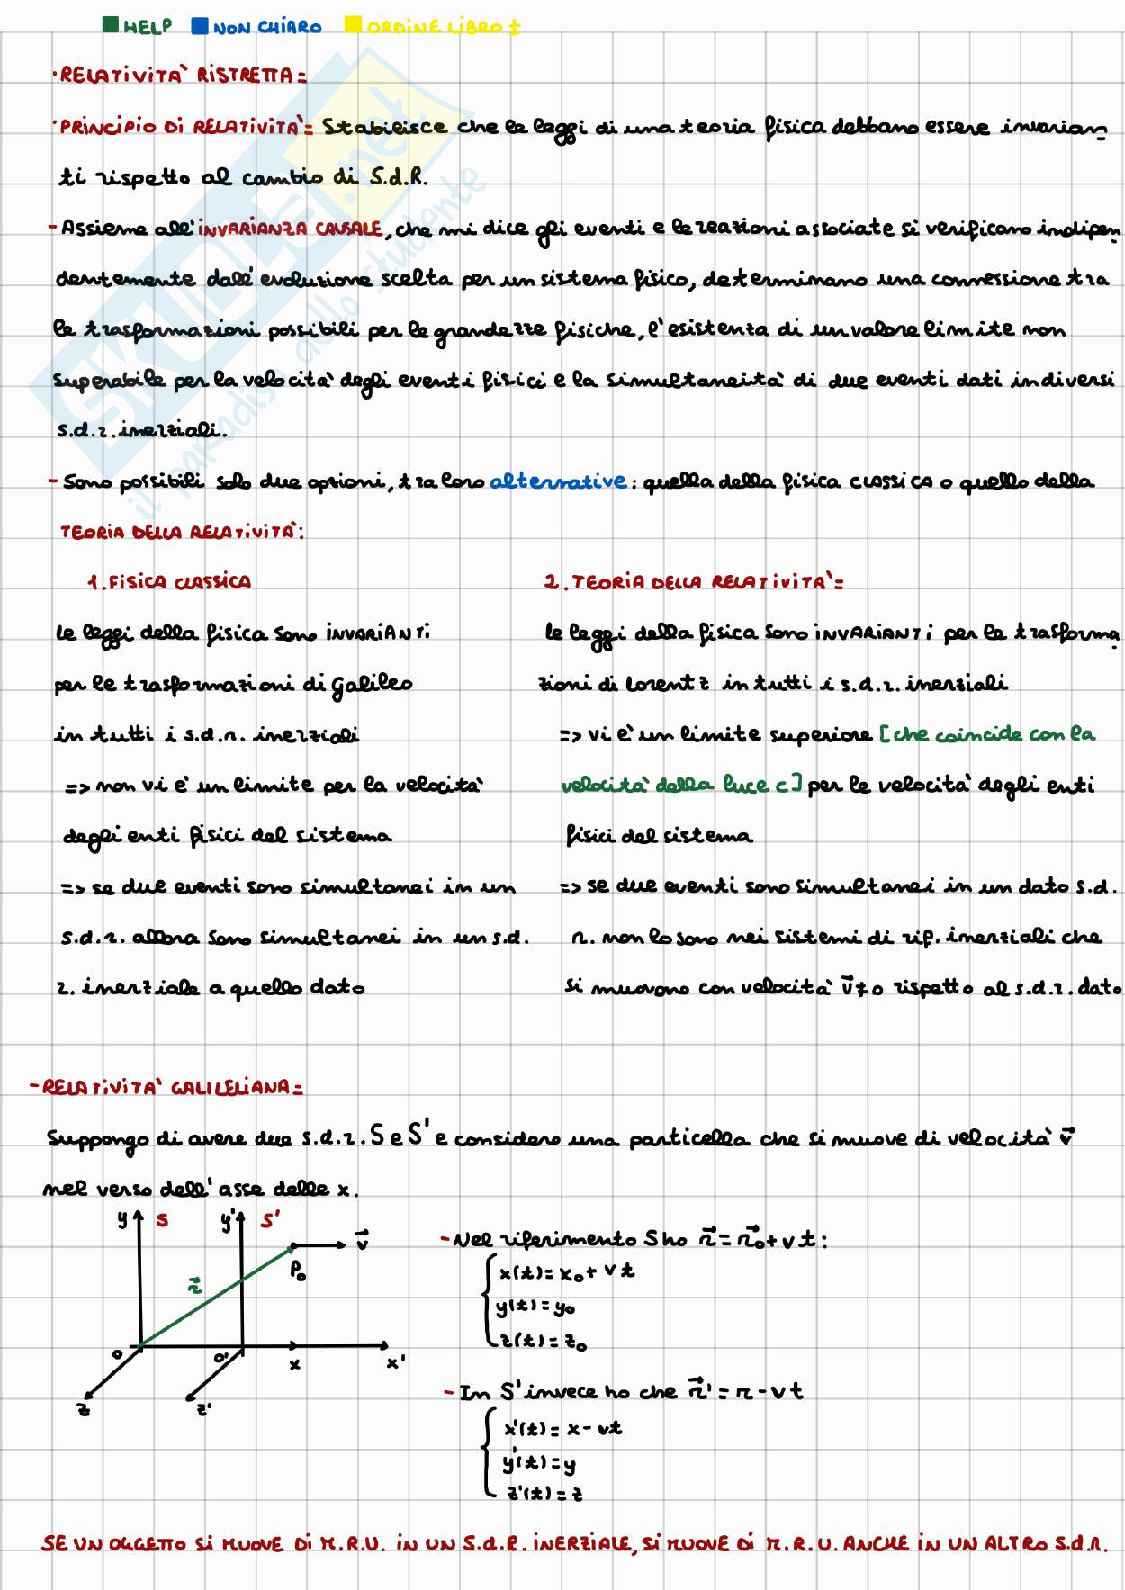 HELP NON CHIARO ORDINE LIBRO t
·RELATIVITA' RISTRETTA=
·PRINCIPIO DI RELATIVITA'= Stabilisce che le leggi di una teoria fisica debbano essere invarian
ti rispetto al cambio di S.d.R.
-Assieme all'INVARIANZA CAUSALE, che mi dice gli eventi e le reazioni associate si verificano indipen
dentemente dall'evoluzione scelta per un sistema fisico, determinano una connessione tra
le trasformazioni possibili per le grandezze fisiche, l'esistenza di un valore limite non
superabile per la velocità degli eventi fisici e la simultaneità di due eventi dati in diversi
s.d.r. inerziali.
-Sono possibili solo due opzioni, tra loro alternative: quella della fisica CLASSICA o quello della
TEORIA DELLA RELATIVITA':
1. FISICA CLASSICA
le leggi della fisica sono INVARIANTI
per le trasformazioni di Galileo
in tutti i s.d.r. inerziali
=> non vi è un limite per la velocità
degli enti fisici del sistema
=> se due eventi sono simultanei in un
s.d.r. allora sono simultanei in un s.d.
r. inerziale a quello dato
2. TEORIA DELLA RELATIVITA'=
le leggi della fisica sono INVARIANTI per le trasforma
zioni di Lorentz in tutti i s.d.r. inerziali
=> vi è un limite superiore [che coincide con la
velocità della luce c] per le velocità degli enti
fisici del sistema
=> se due eventi sono simultanei in un dato s.d.
r. non lo sono nei sistemi di rif. inerziali che
si muovono con velocità v⃗≠0 rispetto al s.d.r. dato
-RELATIVITA' GALILELIANA=
Suppongo di avere due s.d.r. S e S' e considero una particella che si muove di velocità v⃗
nel verso dell'asse delle x.
y S y' S'
v⃗
P₀
r⃗
O O' x x'
z z'
-Nel riferimento S ho r⃗=r⃗₀+vt:
x(t)=x₀+vt
y(t)=y₀
z(t)=z₀
-In S' invece ho che r⃗'=r-vt
x'(t)=x-vt
y'(t)=y
z'(t)=z
SE UN OGGETTO SI MUOVE DI M.R.U. IN UN S.d.R. INERZIALE, SI MUOVE DI M.R.U. ANCHE IN UN ALTRO S.d.R.
SKUOLA.net
il paradiso dello studente